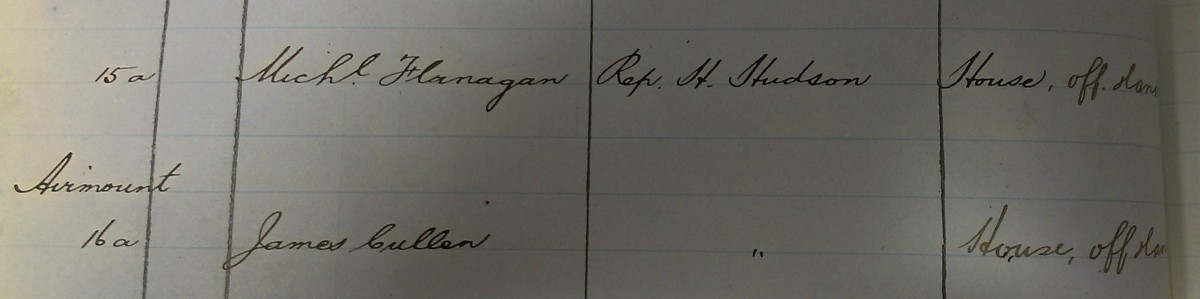 15a Michl. Flanagan Rep. H. Hudson House, off.
Airmount
16a James Cullen " House, off